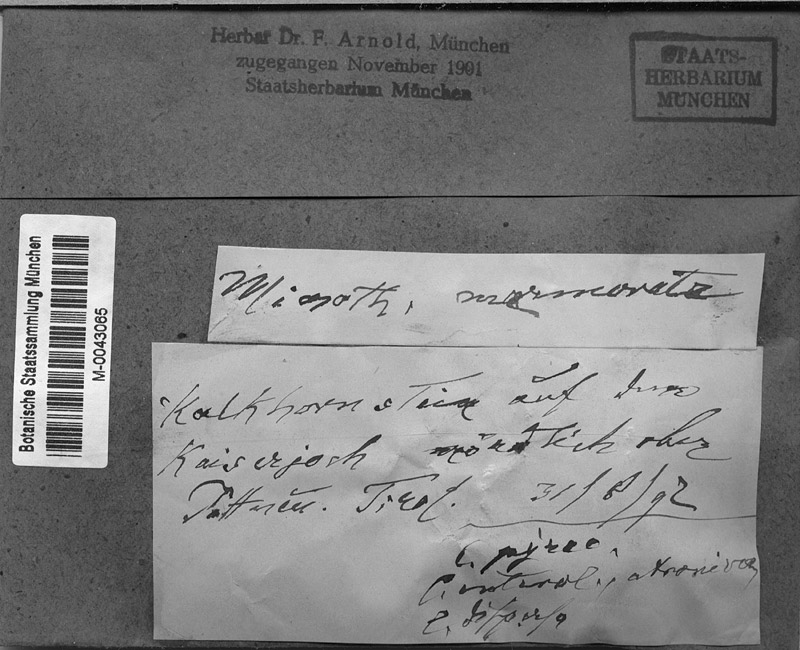 Herbar Dr. F. Arnold, München
zugegangen November 1901
Staatsherbarium München
STAATS-
HERBARIUM
MÜNCHEN
Botanische Staatssammlung München
M-0043065
marmorata
Kalkhornstein auf dem
Kaiserjoch nördlich ober
Pettneu. Tirol. 31/8/92